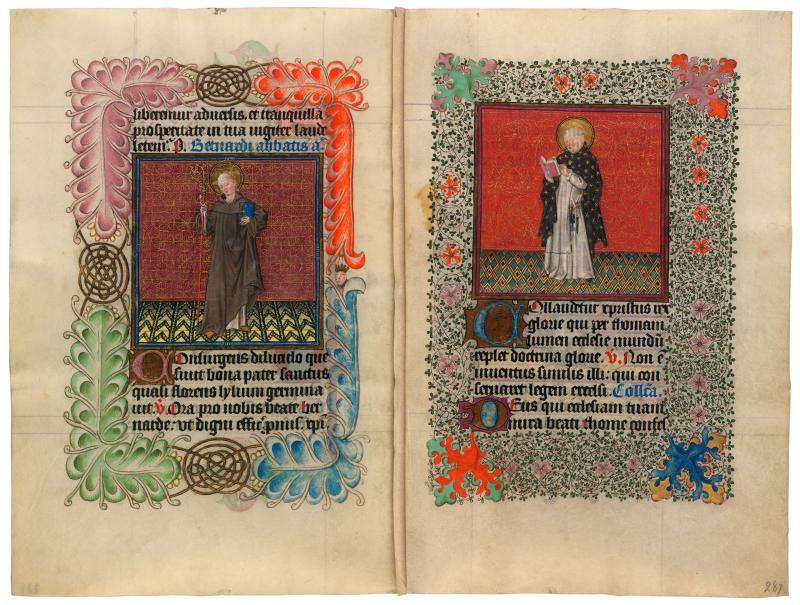 liberemur adversis. et tranquilla
prosperitate in tua iugiter laude
letem². P. Bernardi abbatis a.
Consurgens diluculo que
sivit bona pater sanctus
quasi florens lylium germina
vit. V. Ora pro nobis beate ber
narde. ut digni effic. pmis. xpi
Collaudetur xpristus rex
glorie qui per thomam
lumen ecclesie mundū
replet doctrina glorie. V. Non ē
inventus similis illi: qui con
servaret legem excelsi. Collca.
Deus qui ecclesiam tuam
mira beati thome confes
287